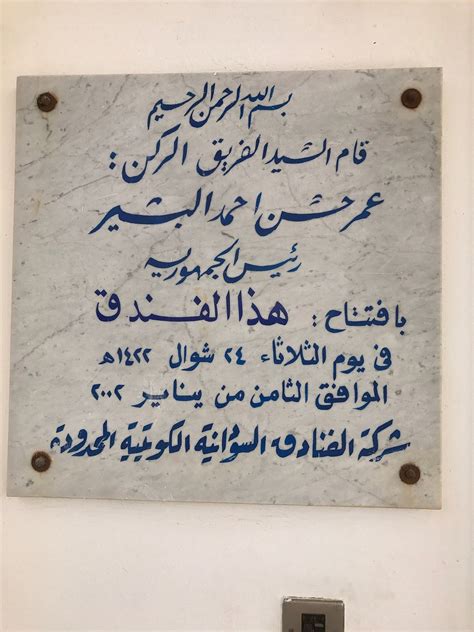 بسم الله الرحمن الرحيم
قام السيد الفريق الركن :
عمر حسن احمد البشير
رئيس الجمهورية
بافتتاح : هذا الفندق
فى يوم الثلاثاء ٢٤ شوال ١٤٢٢هـ
الموافق الثامن من يناير ٢٠٠٢
شركة الفنادق السودانية الكويتية المحدودة